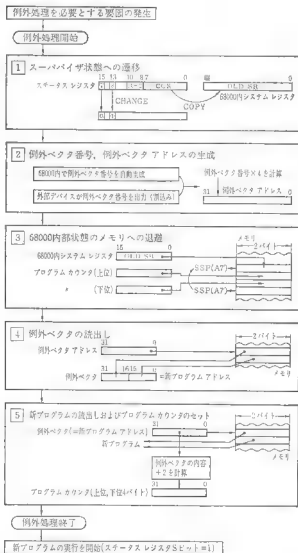 例外処理を必要とする要因の発生
例外処理開始
1 スーパバイザ状態への遷移
15 13 10 87 0
ステータス レジスタ
0
OLD_SR
68000内システム レジスタ
CHANGE
COPY
2 例外ベクタ番号，例外ベクタ アドレスの生成
68000内で例外ベクタ番号を自動生成
外部デバイスが例外ベクタ番号を出力(割込み)
例外ベクタ番号×4を計算
31 例外ベクタ アドレス 0
3 68000内部状態のメモリへの退避
15 0
メモリ
2バイト
68000内システム レジスタ
OLD_SR
プログラム カウンタ(上位)
〃 (下位)
SSP(A7)
SSP(A7)
メモリ
4 例外ベクタの読出し
31 0
例外ベクタ アドレス
2バイト
31 1615 0
例外ベクタ
=新プログラム アドレス
メモリ
5 新プログラムの読出しおよびプログラム カウンタのセット
31 0
2バイト
例外ベクタ(=新プログラム アドレス)
新プログラム
メモリ
例外ベクタの内容
+2を計算
31 0
プログラム カウンタ(上位,下位4バイト)
例外処理終了
新プログラムの実行を開始(ステータス レジスタSビット=1)